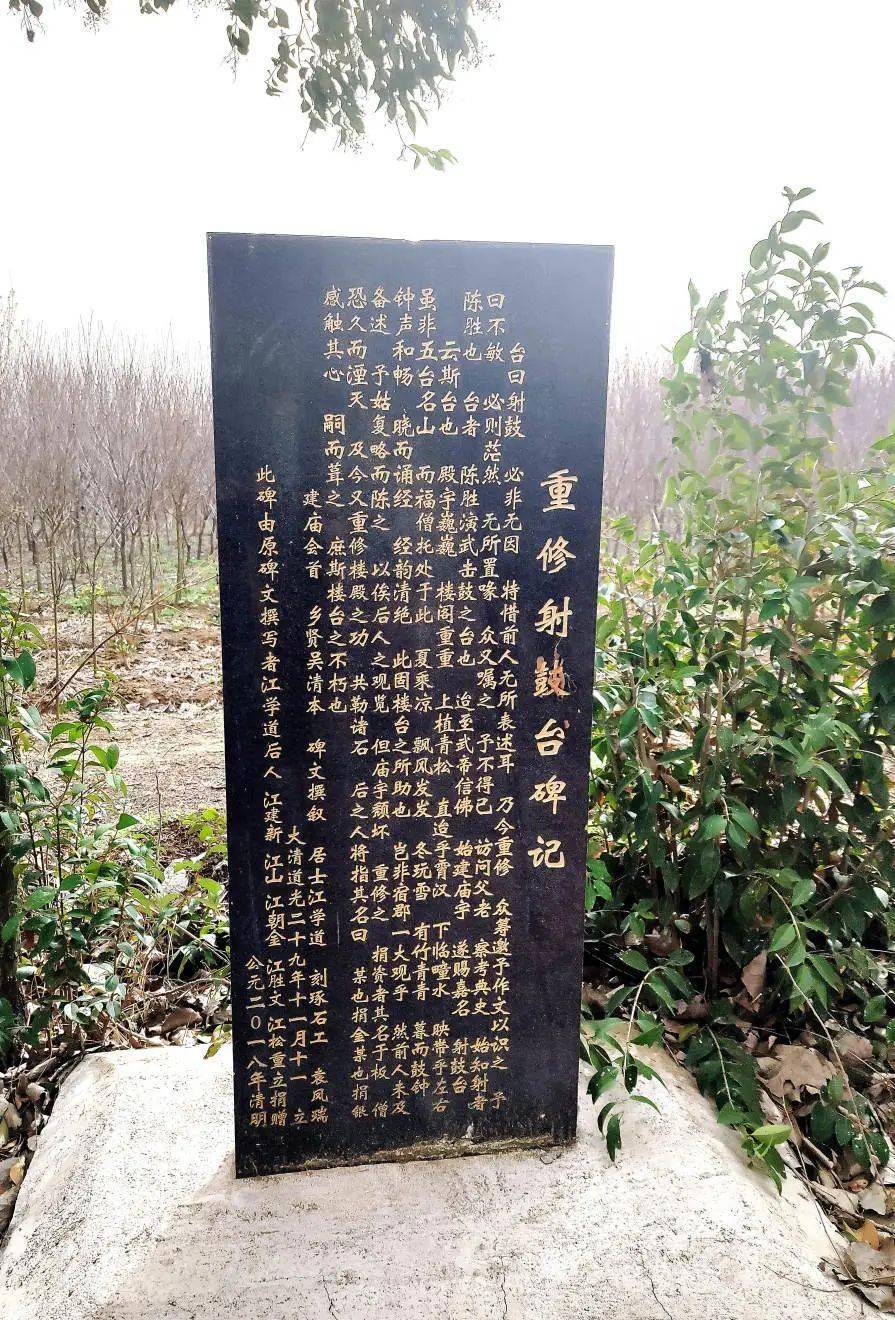 重修射鼓台碑记
台曰射鼓 必非无因 特惜前人无所表述耳 乃今重修 众等邀予作文以识之 予
曰不敏 必则茫然 无所置喙 众又嘱之 予不得已 访问父老 察考典史 始知射者
陈胜也 台者 陈胜演武击鼓之台也 迨至武帝信佛 始建庙宇 遂赐嘉名 射鼓台
云斯台也 殿宇巍巍 楼阁重重 上植青松 直造乎霄汉 下临潼水 映带乎左右
虽非五台名山 而福僧托处于此 夏乘凉 飘风发发 冬玩雪 有竹青青 暮而鼓钟
钟声和畅 晓而诵经 经韵清绝 此固楼台之所助也 岂非宿郡一大观乎 然前人未及
备述 予姑复略而陈之 以俟后人之观览 但庙宇颓坏 重修之 捐资者其名于板 僧
恐久而湮灭 及今又重修楼殿之功 共勒诸石 后之人将指其名曰 某也捐金某也捐银
感触其心 嗣而葺之 庶斯楼台之不朽也
建庙会首 乡贤吴清本 碑文撰叙 居士江学道 刻琢石工 袁凤瑞
大清道光二十九年十一月十一 立
此碑由原碑文撰写者江学道后人 江建新 江山 江朝金 江胜文 江松重立捐赠
公元二〇一八年清明